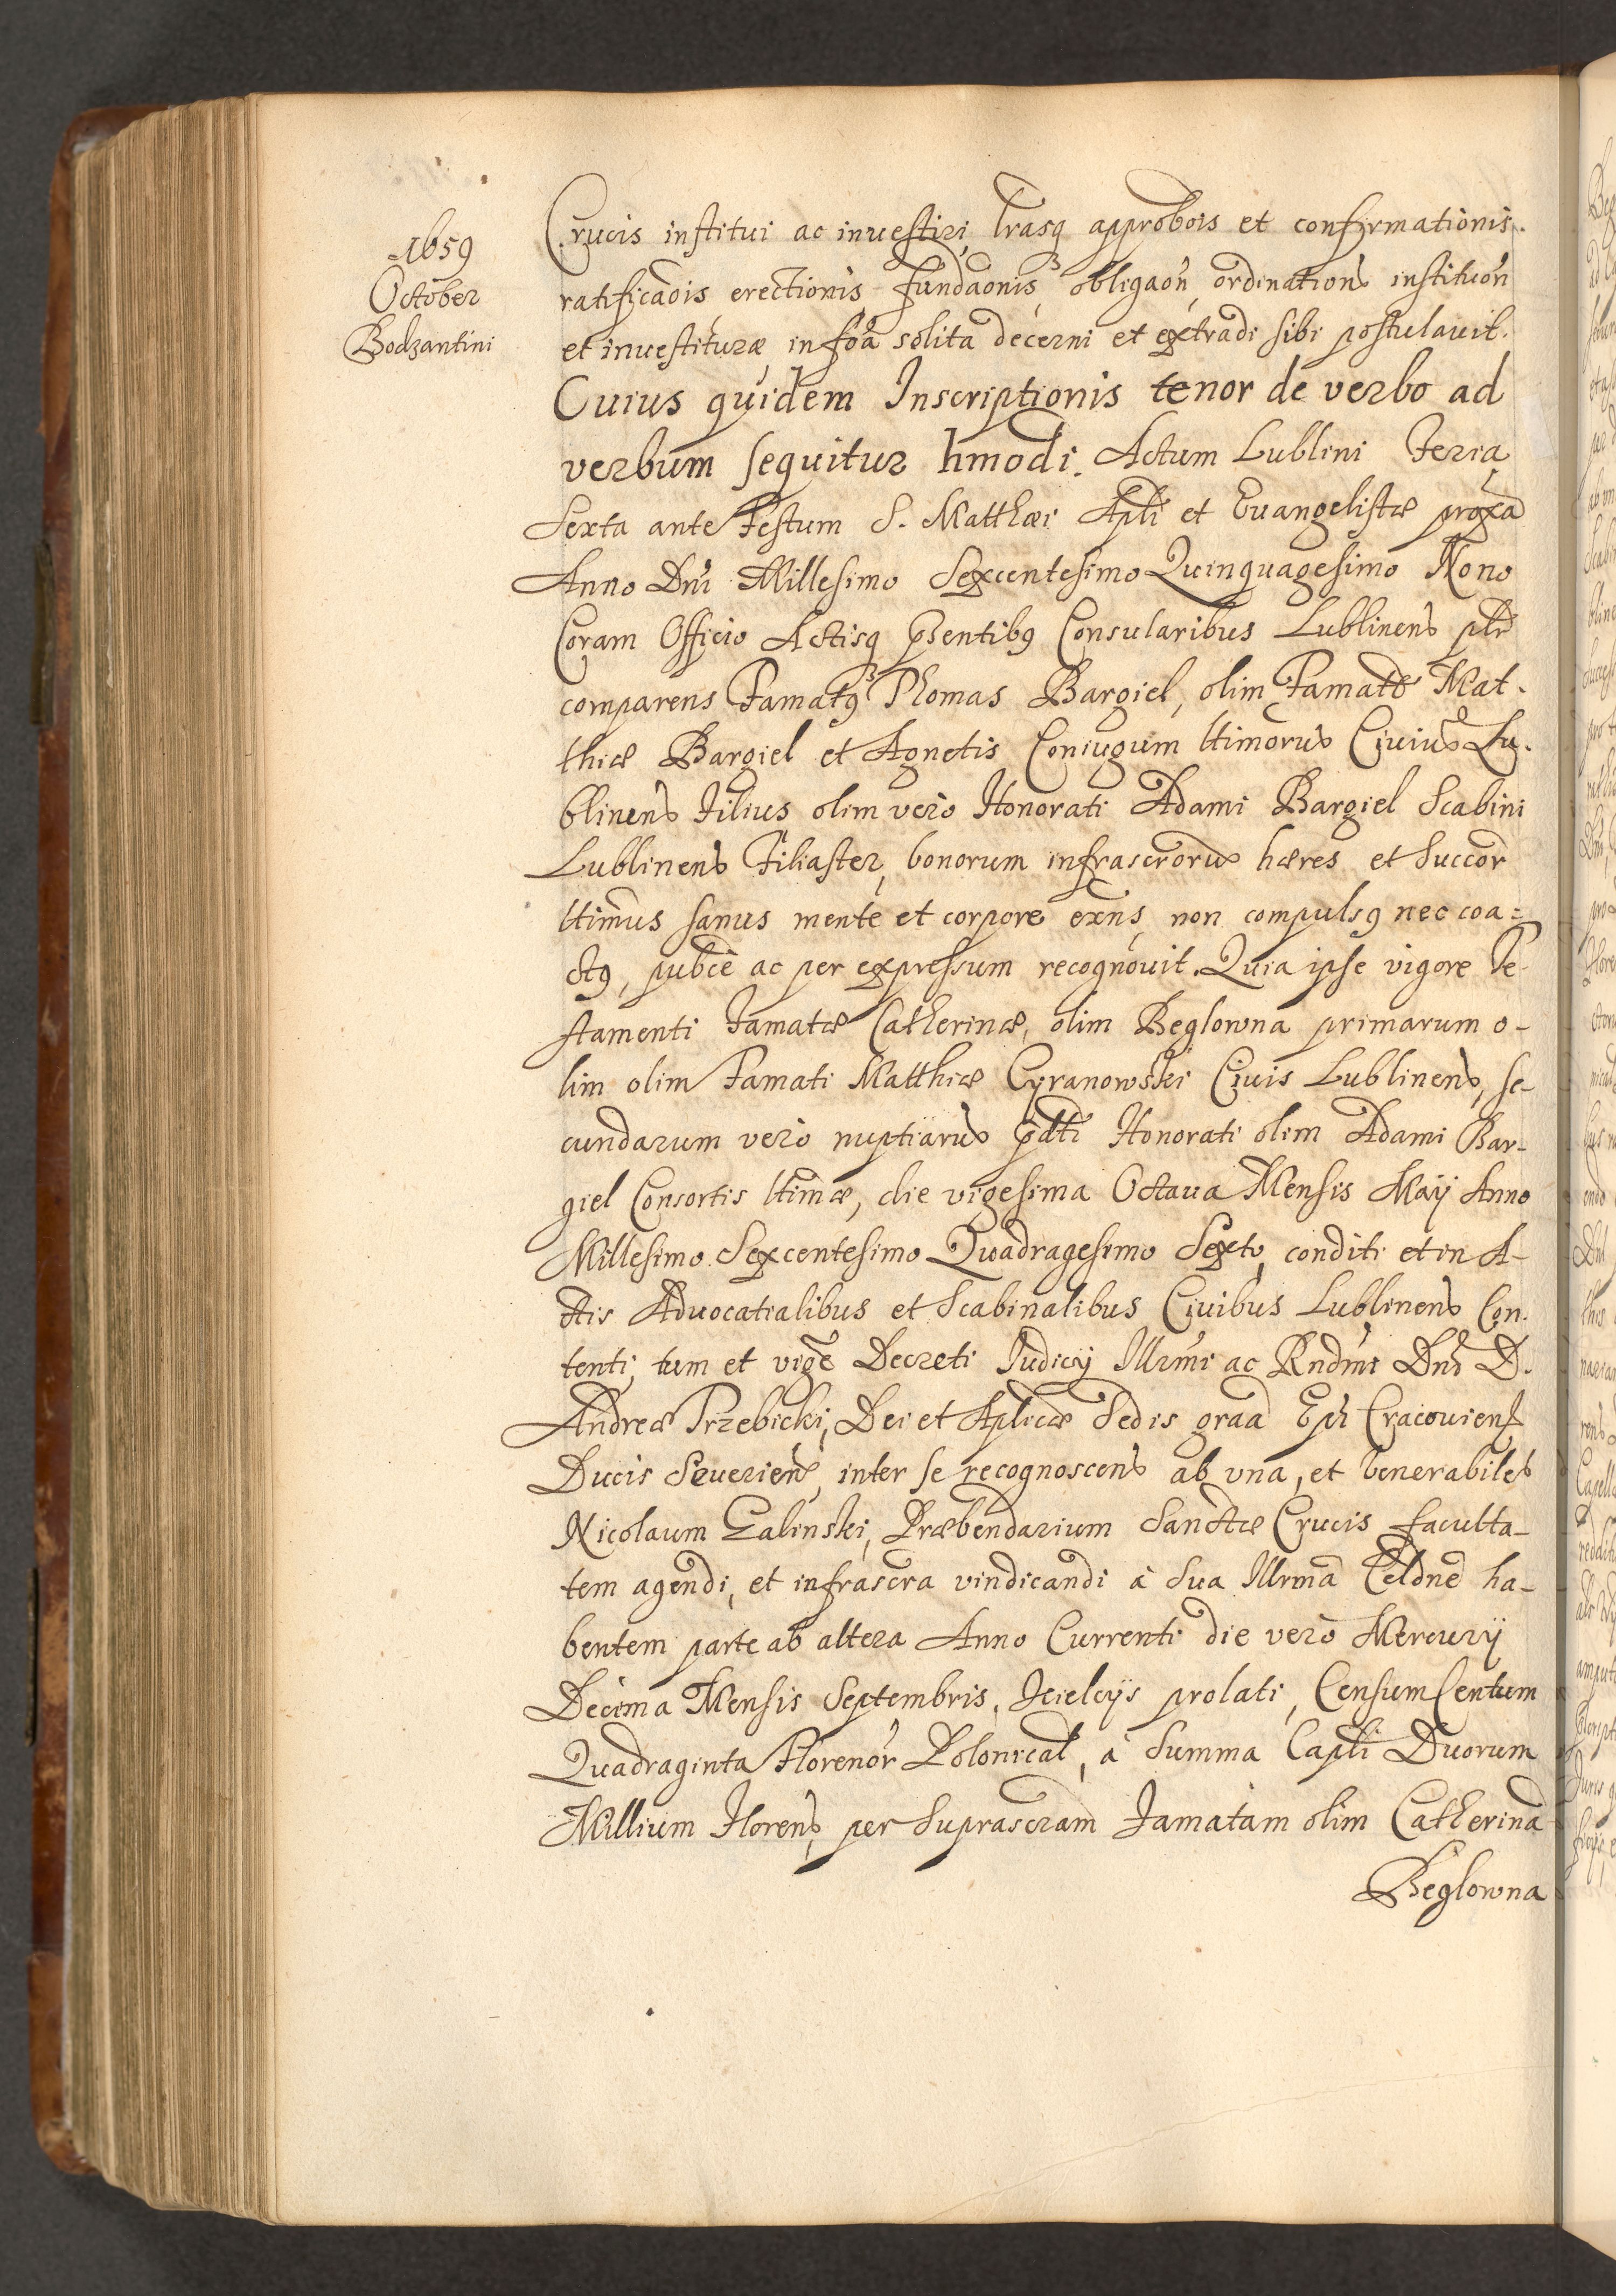 1659
October
Bodzantini
Crucis institui ac inuestiri, lrasq approbois et confirmationis.
ratificaois, erectionis fundaonis, obligaon, ordinations instituon
et inuestituræ in foa solita decerni et extradi sibi postulauit.
Cuius quidem Inscriptionis tenor de verbo ad
verbum sequitur hmodi. Actum Lublini Feria
Sexta ante Festum S. Matthæi Apli et Euangelistæ proxa
Anno Dni Millesimo Sexcentesimo Quinquagesimo Nono
Coram Officio Actisq pzentibq Consularibus Lublinens plr
comparens Famatq Thomas Bargiel, olim Famatoe Mat-
thiæ Bargiel et Agnetis Coniugum ltimorum Ciuium Lu-
blinens Filius olim vero Honorati Adami Bargiel Scabini
Lublinens Filiaster, bonorum infrascrorum hæres et Succor
ltimus sanus mente et corpore exns, non compulsq nec coa=
ctq, pubce ac per expressum recognouit. Quia ipse vigore Te-
stamenti Famatæ Catherinæ, olim Beglowna primarum o-
lim olim Famati Matthiæ Cyranowski Ciuis Lublinens, se-
cundarum vero nuptiarum pdti Honorati olim Adami Bar-
giel Consortis ltimæ, die vigesima Octaua Mensis Maÿ Anno
Millesimo Sexcentesimo Quadragesimo Sexto, conditi et in A-
ctis Aduocatialibus et Scabinalibus Ciuibus Lublinens Con-
tenti, tum et vige Decreti Iudicÿ Illrmi ac Rndmi Dni D.
Andreæ Trzebicki, Dei et Aplicæ Sedis graa Epi Cracouiens
Ducis Seueriens, inter se recognoscens ab vna, et Venerabiles
Nicolaum Zalinski, Præbendarium Sanctæ Crucis faculta-
tem agendi, et infrascra vindicandi à Sua Illrma Celdne ha-
bentem parte ab altera Anno Currenti die vero Mercurÿ
Decima Mensis Septembris, Kielcÿs prolati, Censum Centum
Quadraginta Florenor Polonical, à Summa Capli Duorum
Millium Florens, per Suprascram Famatam olim Catherina
Beglowna